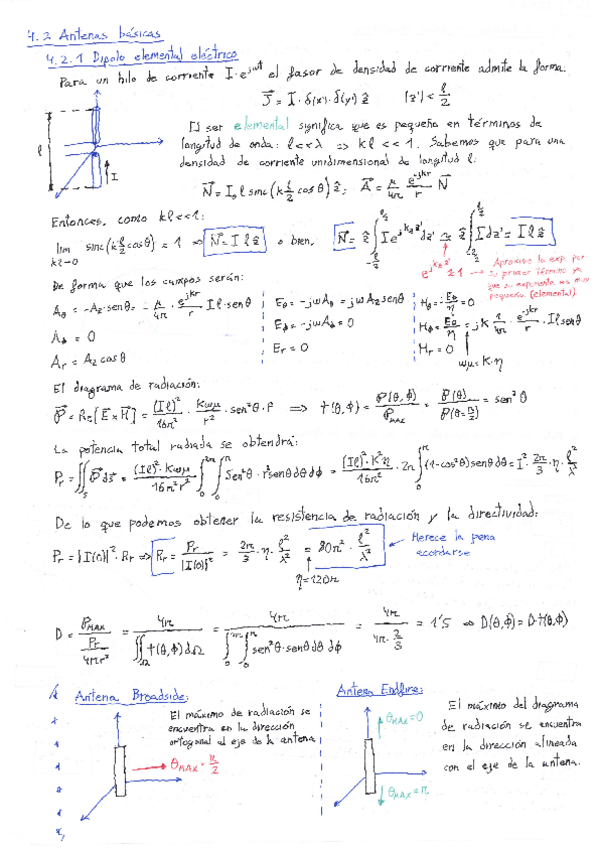 4.2 Antenas básicas
4.2.1 Dipolo elemental eléctrico
Para un hilo de corriente I·e^{jωt} el fasor de densidad de corriente admite la forma:
J⃗ = I·δ(x')·δ(y') ẑ |z'| < ℓ/2
El ser elemental significa que es pequeña en términos de
longitud de onda: ℓ<<λ => kℓ << 1. Sabemos que para una
densidad de corriente unidimensional de longitud ℓ:
N⃗ = I₀ ℓ sinc(k ℓ/2 cosθ) ẑ; A⃗ = μ/4π e^{-jkr}/r N⃗
ℓ
I
Entonces, como kℓ<<1:
lim kℓ→0 sinc(k ℓ/2 cosθ) = 1 => N⃗ = I ℓ ẑ o bien, N⃗ = ẑ ∫_{-ℓ/2}^{ℓ/2} I e^{jk_z z'} dz' ≃ ẑ ∫_{-ℓ/2}^{ℓ/2} I dz' = I ℓ ẑ
e^{jk_z z'} ≃ 1 → Aproximo la exp. por
su primer término ya
que su exponente es muy
pequeño (elemental).
De forma que los campos serán:
A_θ = -A_z·senθ = -μ/4π · e^{-jkr}/r I ℓ·senθ
A_ϕ = 0
A_r = A_z cosθ
E_θ = -jωA_θ = jωA_z senθ
E_ϕ = -jωA_ϕ = 0
E_r = 0
H_ϕ = E_θ/η = jk 1/4π · e^{-jkr}/r · Iℓ senθ
H_r = 0
ωμ = k·η
El diagrama de radiación:
P⃗ = Re[E⃗ × H⃗] = (Iℓ)²/16π² · kωμ/r² · sen²θ · r̂ => t(θ,ϕ) = P(θ,ϕ)/P_MAX = P(θ)/P(θ=π/2) = sen²θ
La potencia total radiada se obtendrá:
P_r = ∬_S P⃗ ds⃗ = (Iℓ)²·kωμ/16π²r² ∫_0^{2π} ∫_0^π sen²θ·r²senθ dθ dϕ = (Iℓ)²·k²η/16π² · 2π ∫_0^π (1-cos²θ) senθ dθ = I² · 2π/3 · η · ℓ²/λ²
De lo que podemos obtener la resistencia de radiación y la directividad:
P_r = |I(0)|² · R_r => R_r = P_r/|I(0)|² = 2π/3 · η · ℓ²/λ² = 80π² · ℓ²/λ²
← Merece la pena
acordarse
η = 120π
D = P_MAX/(P_r/4πr²) = 4π/∬_Ω t(θ,ϕ)dΩ = 4π/∫_0^{2π} ∫_0^π sen²θ·senθ dθ dϕ = 4π/(4π·2/3) = 1'5 => D(θ,ϕ) = D·t(θ,ϕ)
Antena Broadside:
El máximo de radiación se
encuentra en la dirección
ortogonal al eje de la antena
θ_MAX = π/2
Antena Endfire:
θ_MAX = 0
θ_MAX = π
El máximo del diagrama
de radiación se encuentra
en la dirección alineada
con el eje de la antena.